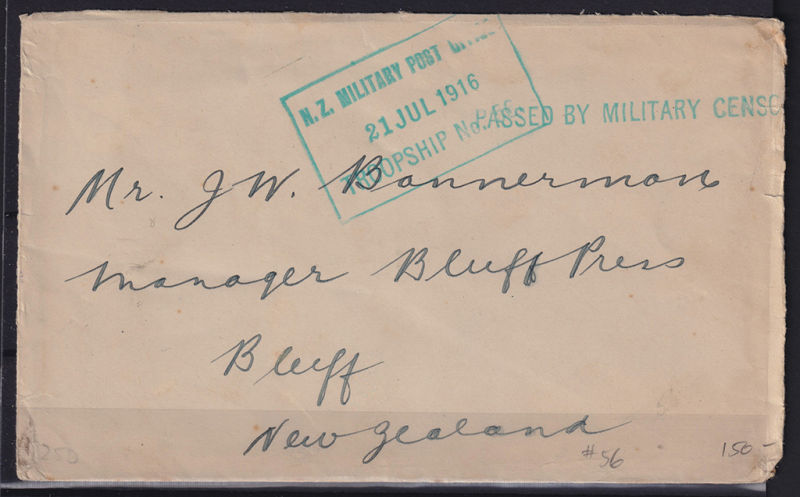 N.Z. MILITARY POST OFFICE
21 JUL 1916
TROOPSHIP No.
PASSED BY MILITARY CENSO
Mr. J W. Bannerman
Manager Bluff Press
Bluff
New Zealand
250
#56
150-